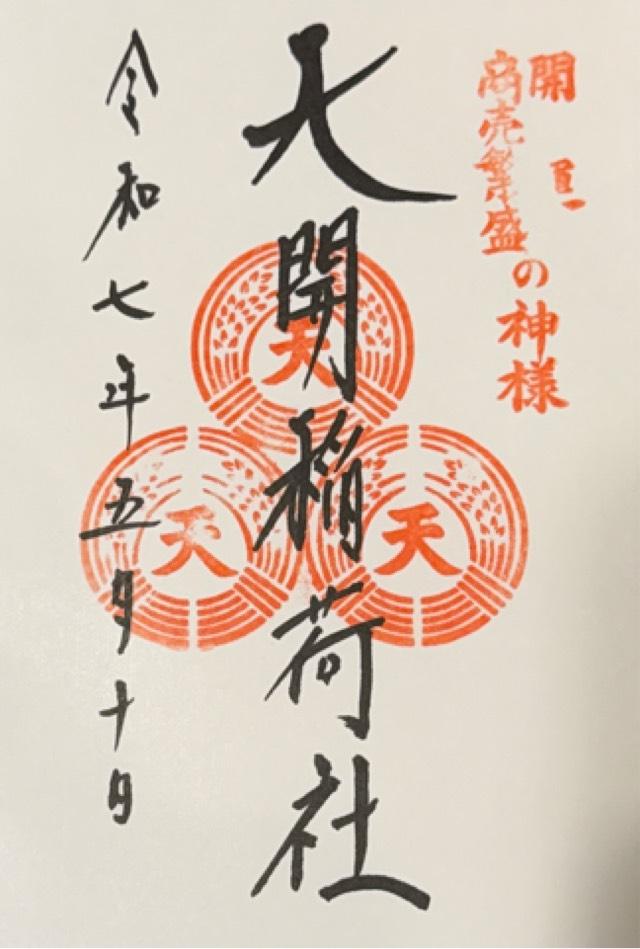 開
商売繁盛の神様
天開稲荷社
天
天
天
令和七年五月十日